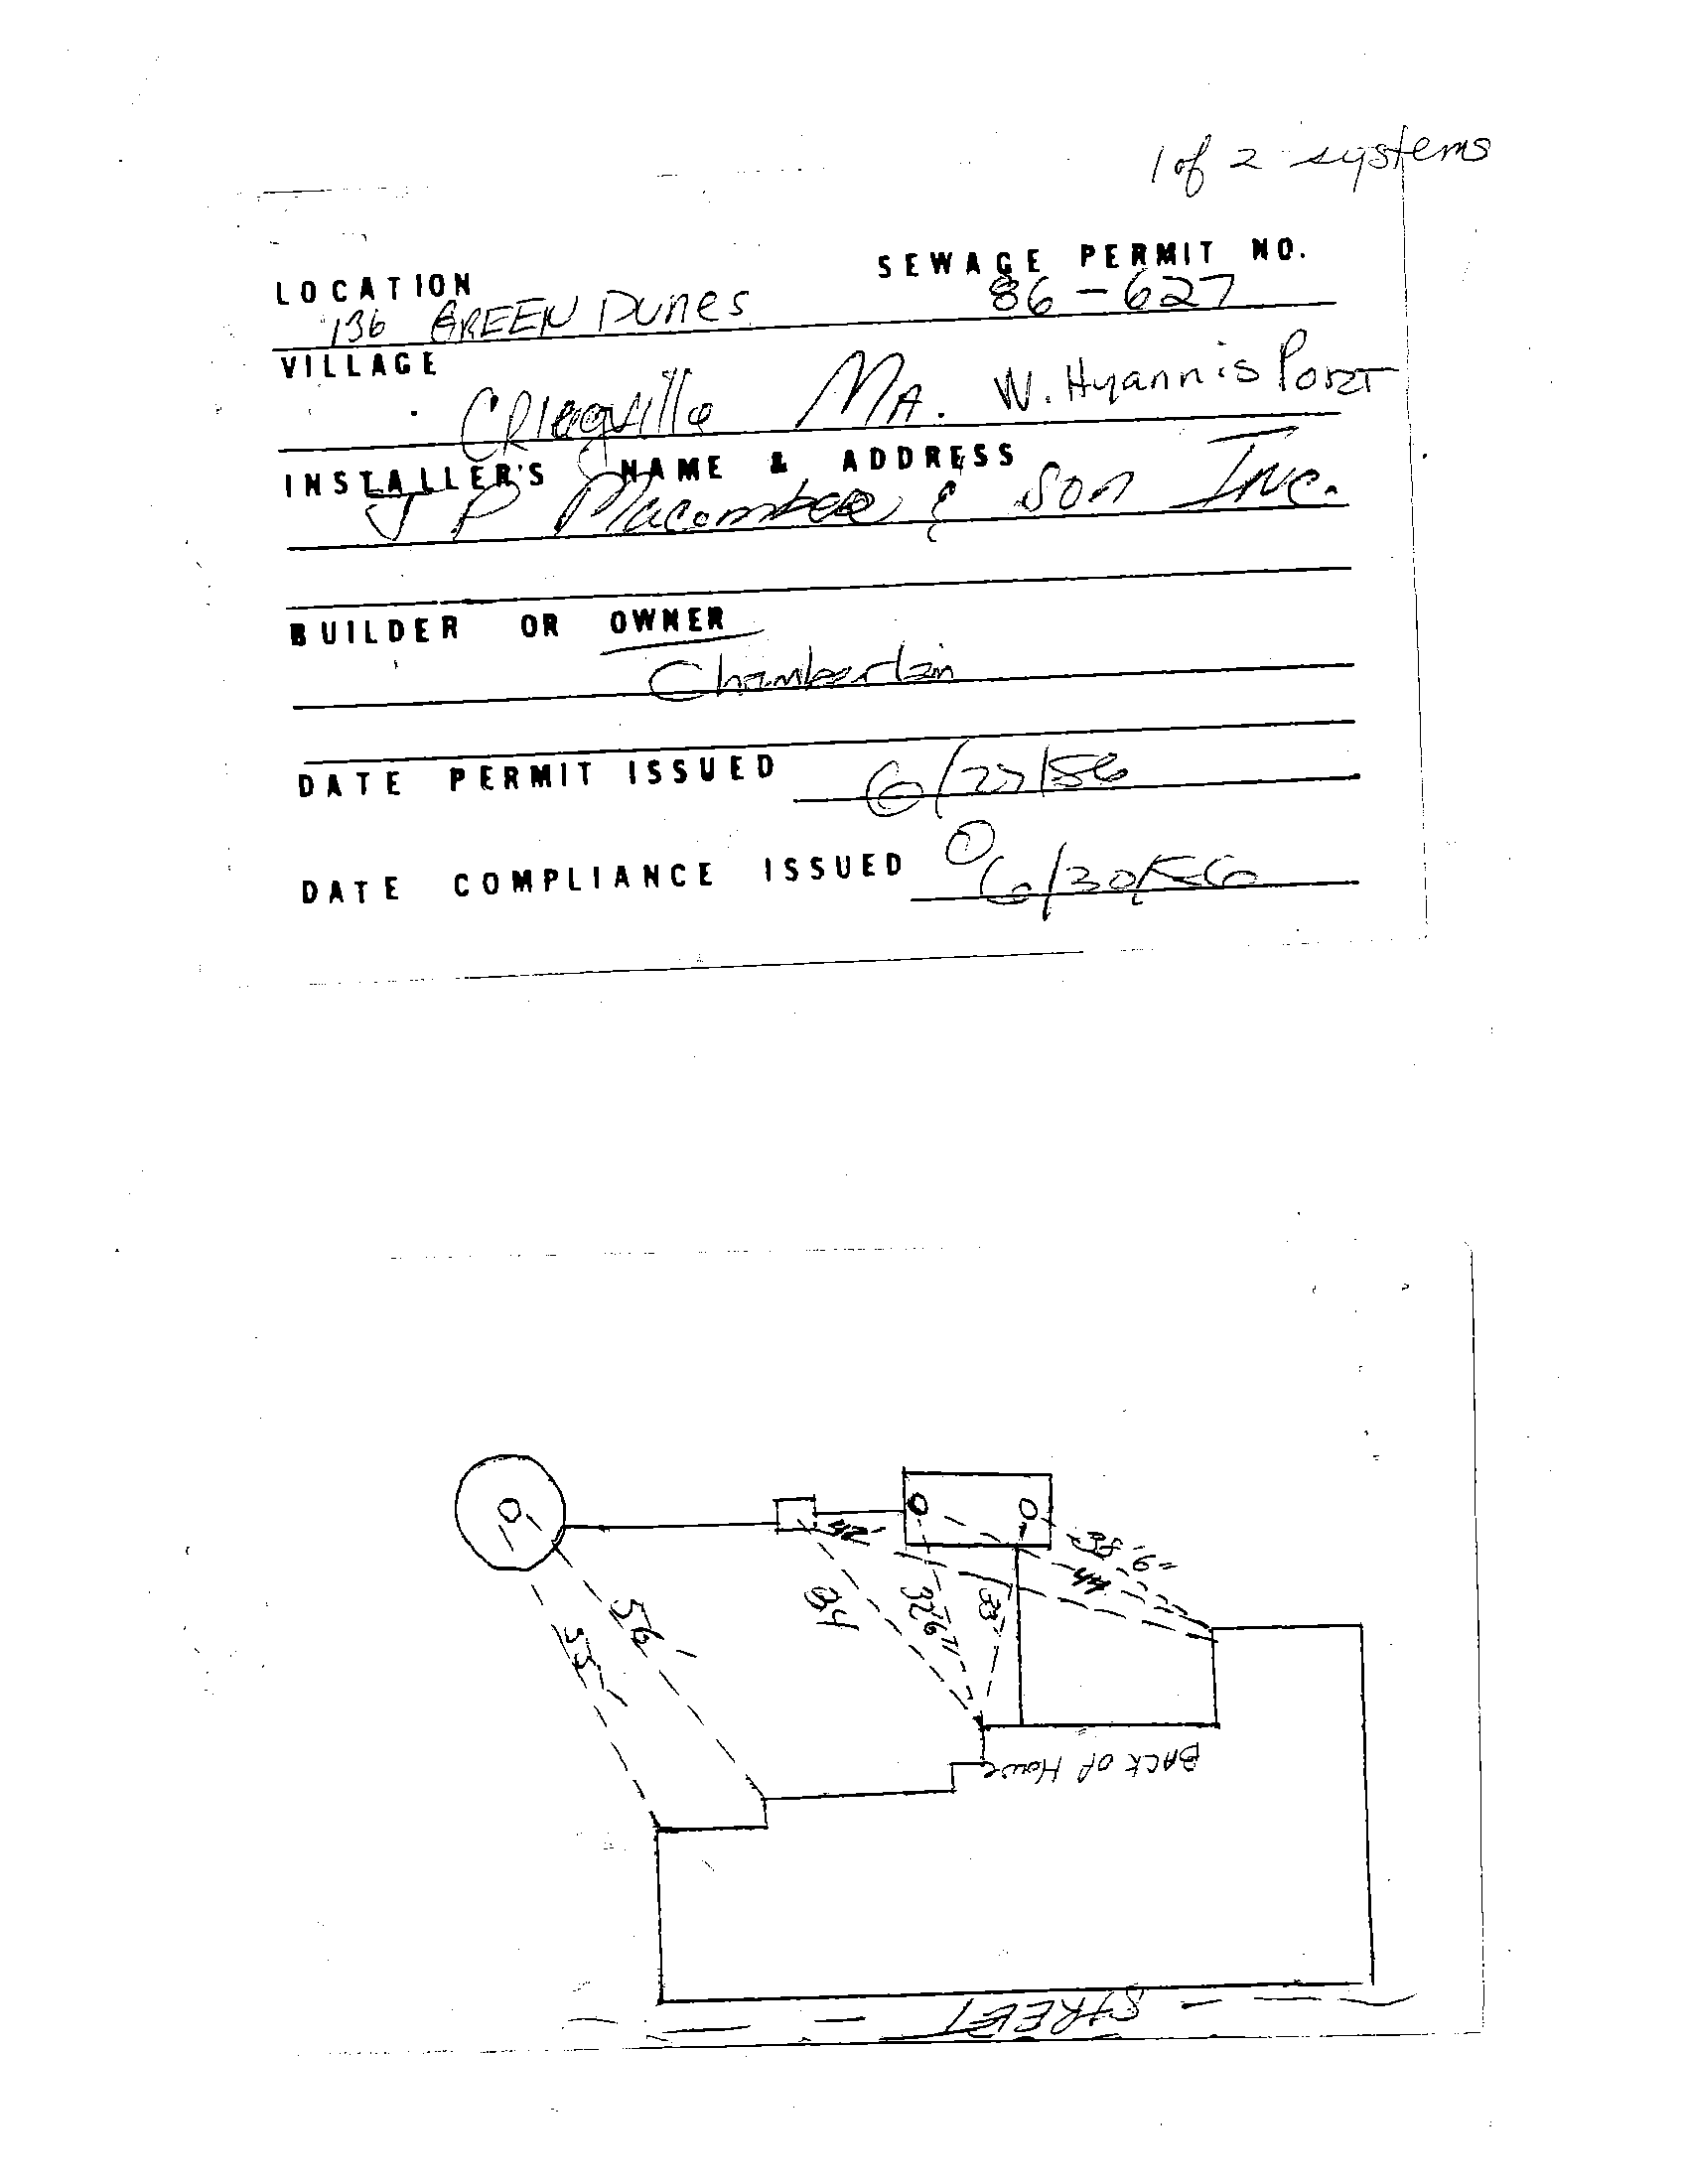 1 of 2 systems
LOCATION SEWAGE PERMIT NO.
136 GREEN Dunes 86-627
VILLAGE
MA. W. Hyannis Port
INSTALLER'S NAME & ADDRESS
J P Macomber & Son Inc.
BUILDER OR OWNER
Chamberlain
DATE PERMIT ISSUED 6/27/86
DATE COMPLIANCE ISSUED 6/30/86
42'
38'-6"
44
32'6"
33'
56'
55'
BACK OF House
STREET